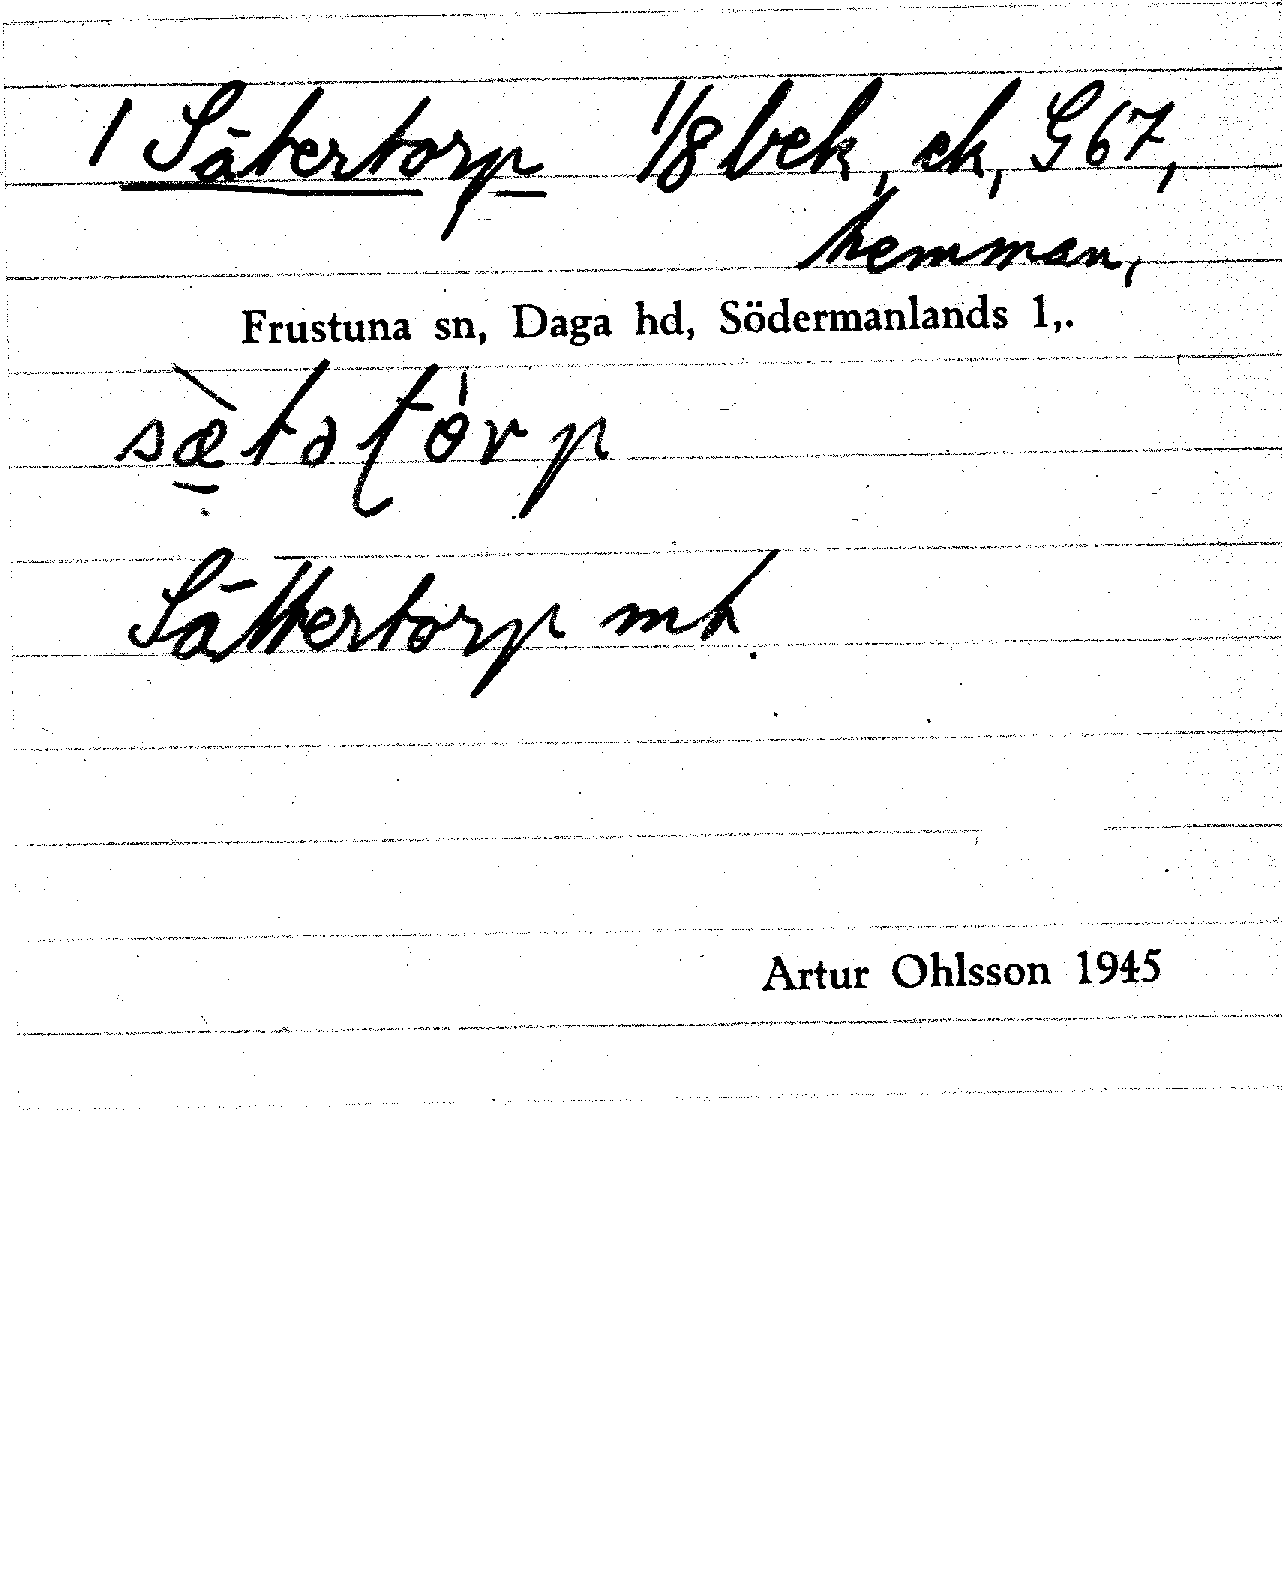 1 Sätertorp 1/8 bek, ek, G 67,
hemman,
Frustuna sn, Daga hd, Södermanlands l,.
sæ̀tətórp
Sättertorp mt.
Artur Ohlsson 1945